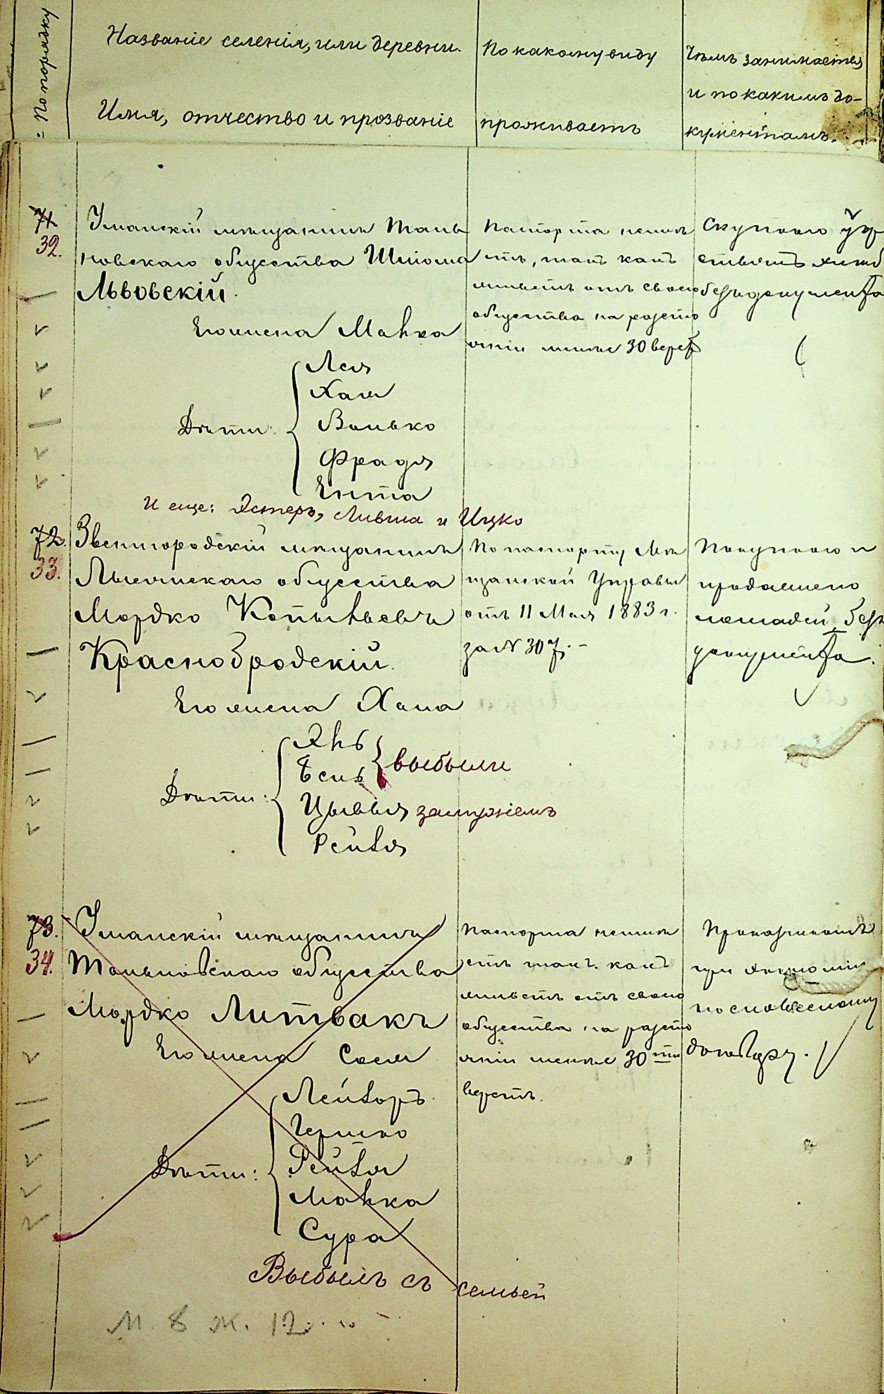 По порядку
Названіе селенія, или деревни.
Имя, отчество и прозваніе
По какому виду
проживаетъ
Чѣмъ занимается
и по какимъ до-
кументамъ.
71
32.
Уманскій мѣщанинъ Таль
новскаго общества Шліома
Львовскій.
Его жена Манка
Дѣти:
Лея
Хая
Волько
Фрадя
Ента
И еще: Эстеръ, Ливша и Ицко
Паспорта неимѣ
етъ, такъ какъ
живетъ отъ своего
общества на разсто
яніи менѣе 30 верстъ
Скупкою
хлѣб
безъ документа
72.
33.
Звенигородскій мѣщанинъ
Лысянскаго общества
Мордко Копыльевъ
Краснобродскій.
Его жена Хана
Дѣти:
Янъ
Есиъ
выбыли
Цывья замужемъ
Рейзя
По паспорту Мѣ
щанской Управы
отъ 11 Мая 1883 г.
за № 307.
Покупкою и
продажею
лошадей безъ
документа.
73.
34.
Уманскій мѣщанинъ
Тальновскаго общества
Мордко Литвакъ
Его жена Сося
Дѣти:
Лейзоръ
Гершко
Рейзя
Манка
Сура
Выбылъ съ семьей
Паспорта неимѣ
етъ такъ какъ
живетъ отъ своего
общества на разсто
яніи менѣе 30ти
верстъ.
при экономіи
по словесному
договору.
М. 8 ж. 12.